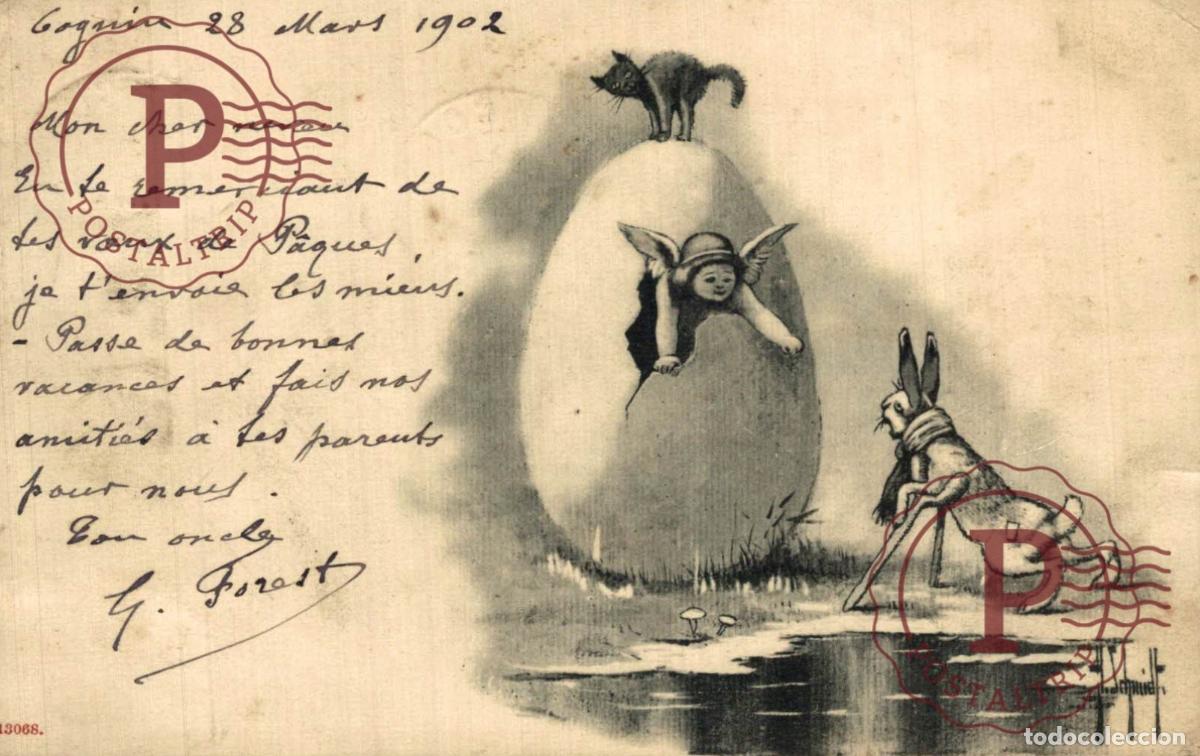 28 Mars 1902
Mon cher neveu
En te remerciant de
tes vœux de Pâques,
je t'envoie les miens.
- Passe de bonnes
vacances et fais nos
amitiés à tes parents
pour nous.
Ton oncle
G. Forest
P
POSTALTRIP
P
POSTALTRIP
13068.
todocoleccion